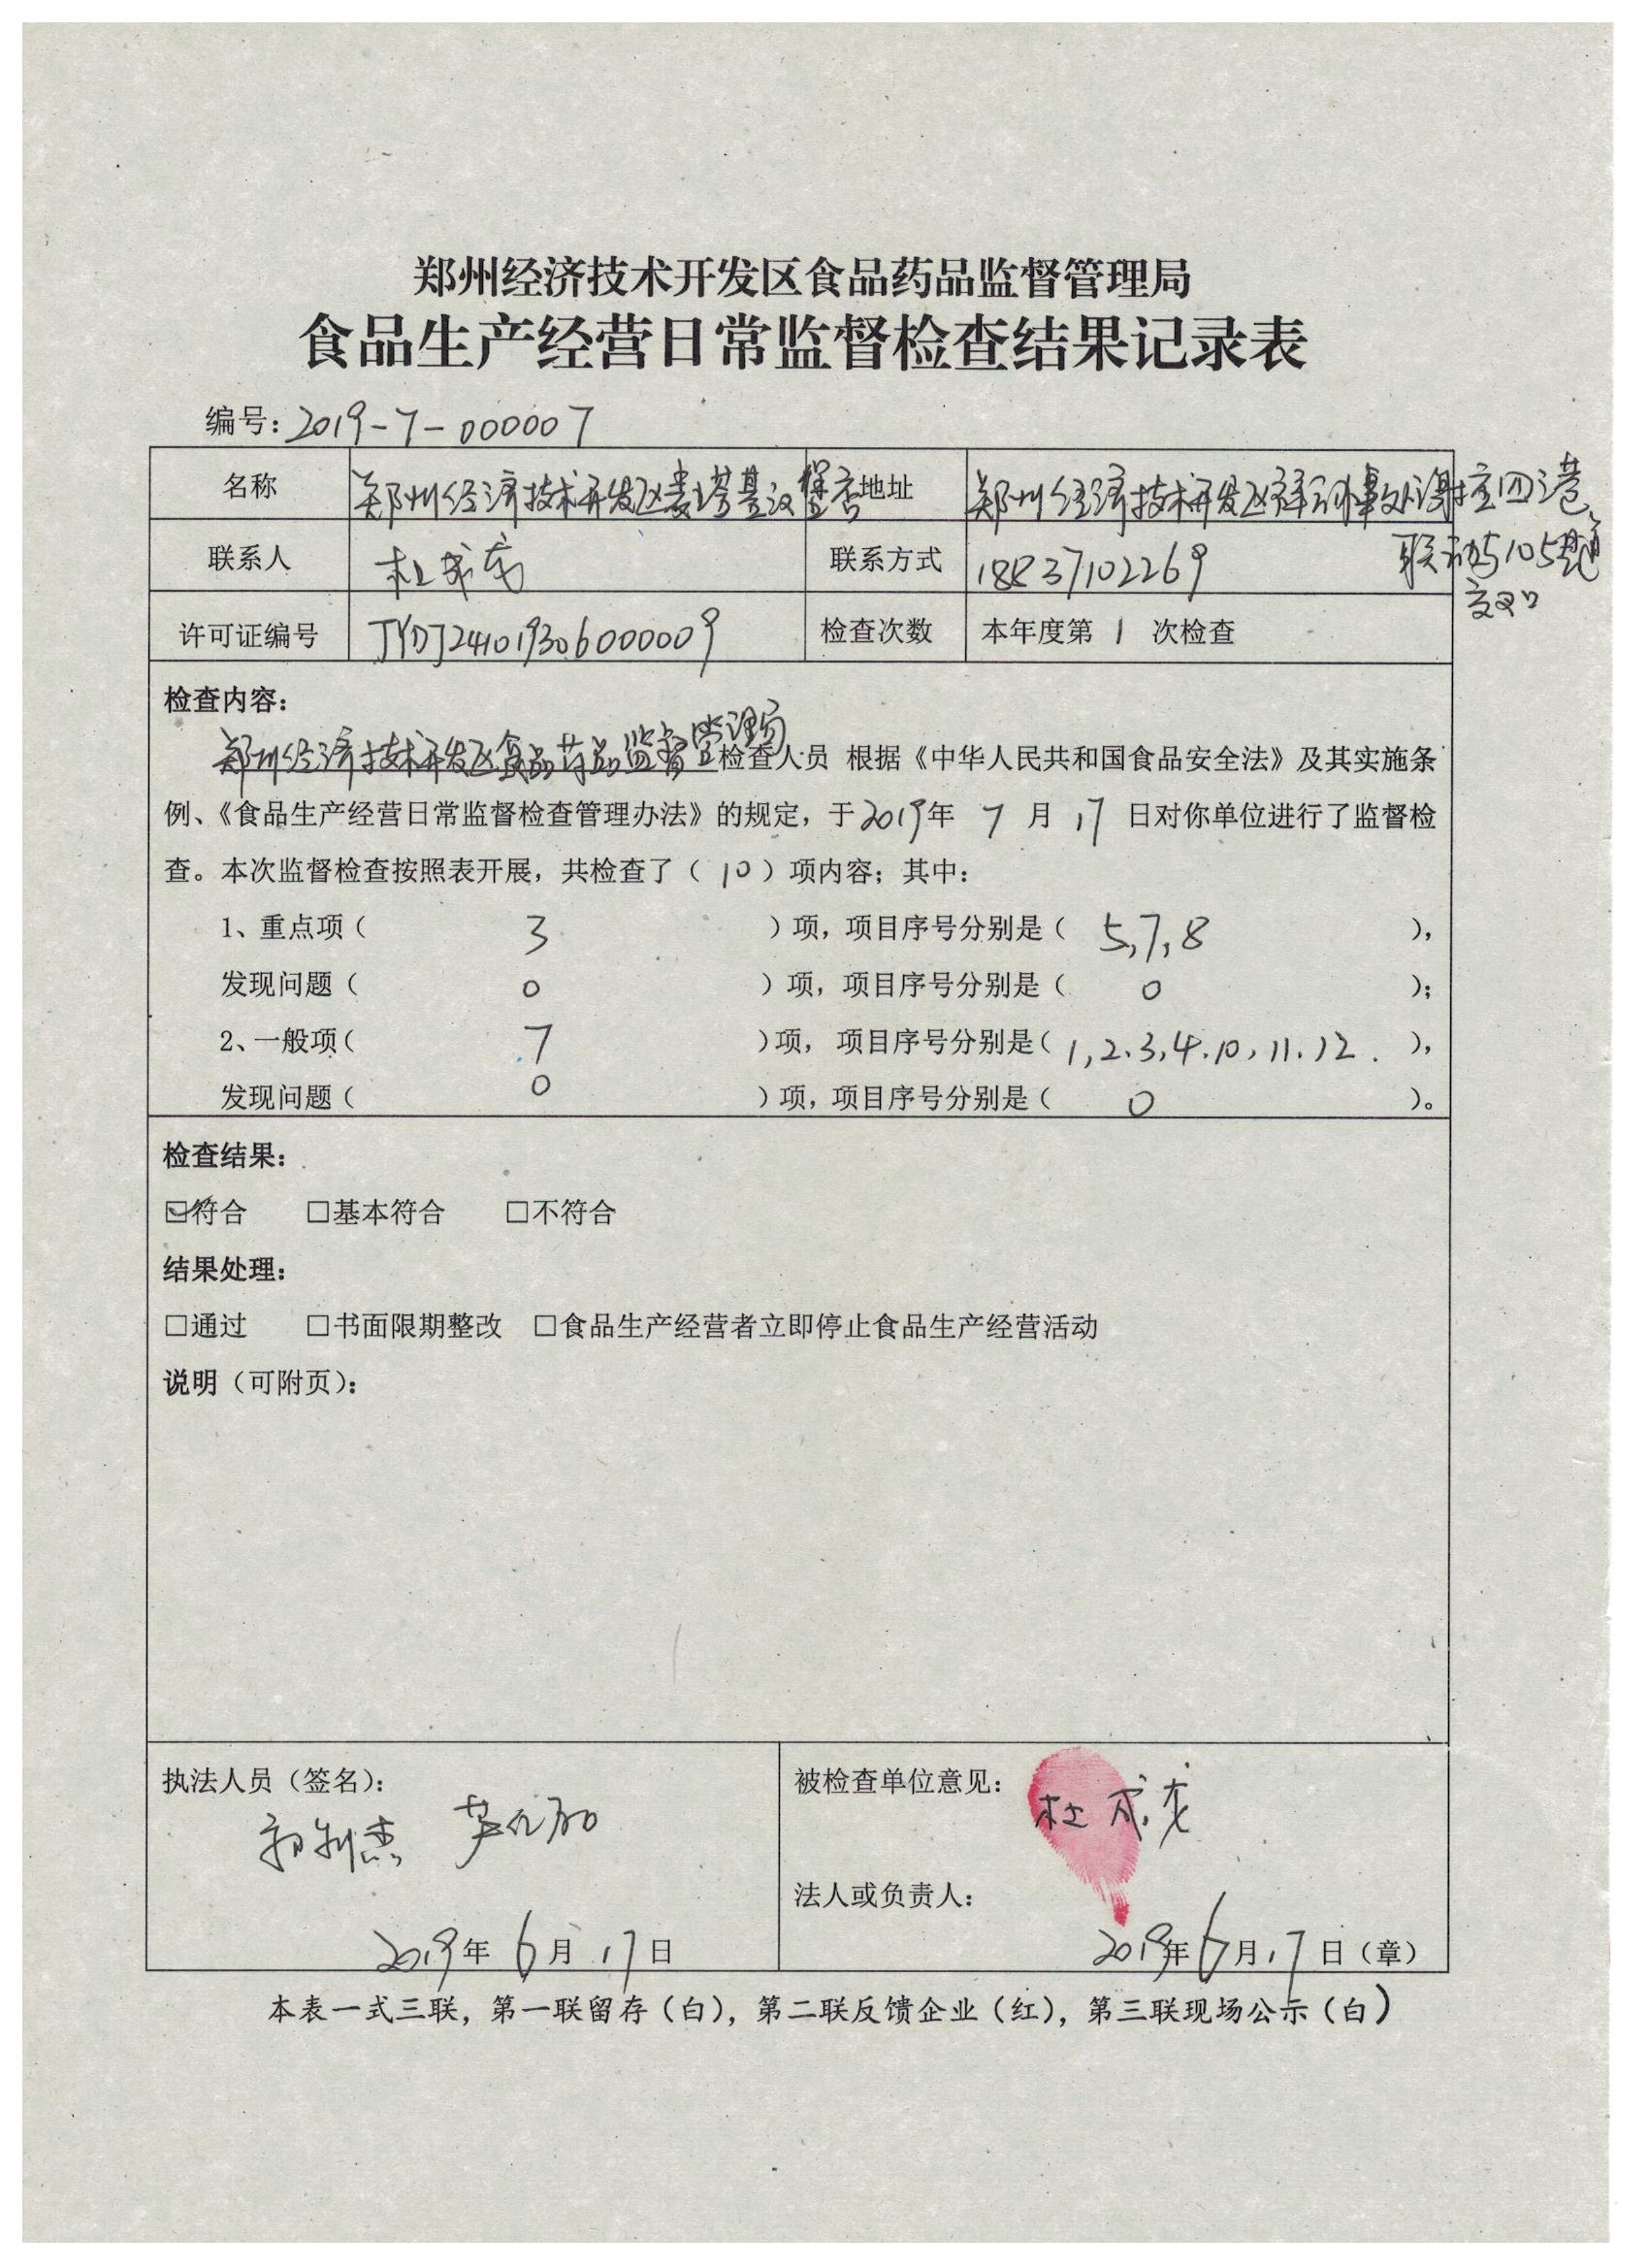 郑州经济技术开发区食品药品监督管理局
食品生产经营日常监督检查结果记录表
编号：2019-7-000007
名称 郑州经济技术开发区娄塔基汉堡店 地址 郑州经济技术开发区祥云办事处
四港
联系人 杜 联系方式 18837102269 联动与105
交叉口
许可证编号 JYDJ24101930600009 检查次数 本年度第 1 次检查
检查内容：
郑州经济技术开发区食品药品监督管理局检查人员 根据《中华人民共和国食品安全法》及其实施条
例、《食品生产经营日常监督检查管理办法》的规定，于2019年 7 月 17 日对你单位进行了监督检
查。本次监督检查按照表开展，共检查了（10）项内容；其中：
1、重点项（ 3 ）项，项目序号分别是（ 5,7,8 ），
发现问题（ 0 ）项，项目序号分别是（ 0 ）；
2、一般项（ 7 ）项， 项目序号分别是（1,2.3,4.10,11.12. ），
发现问题（ 0 ）项，项目序号分别是（ 0 ）。
检查结果：
☑符合 □基本符合 □不符合
结果处理：
□通过 □书面限期整改 □食品生产经营者立即停止食品生产经营活动
说明（可附页）：
执法人员（签名）： 被检查单位意见： 杜
法人或负责人：
2019年 6月 17日 2019年6月17日（章）
本表一式三联，第一联留存（白），第二联反馈企业（红），第三联现场公示（白）